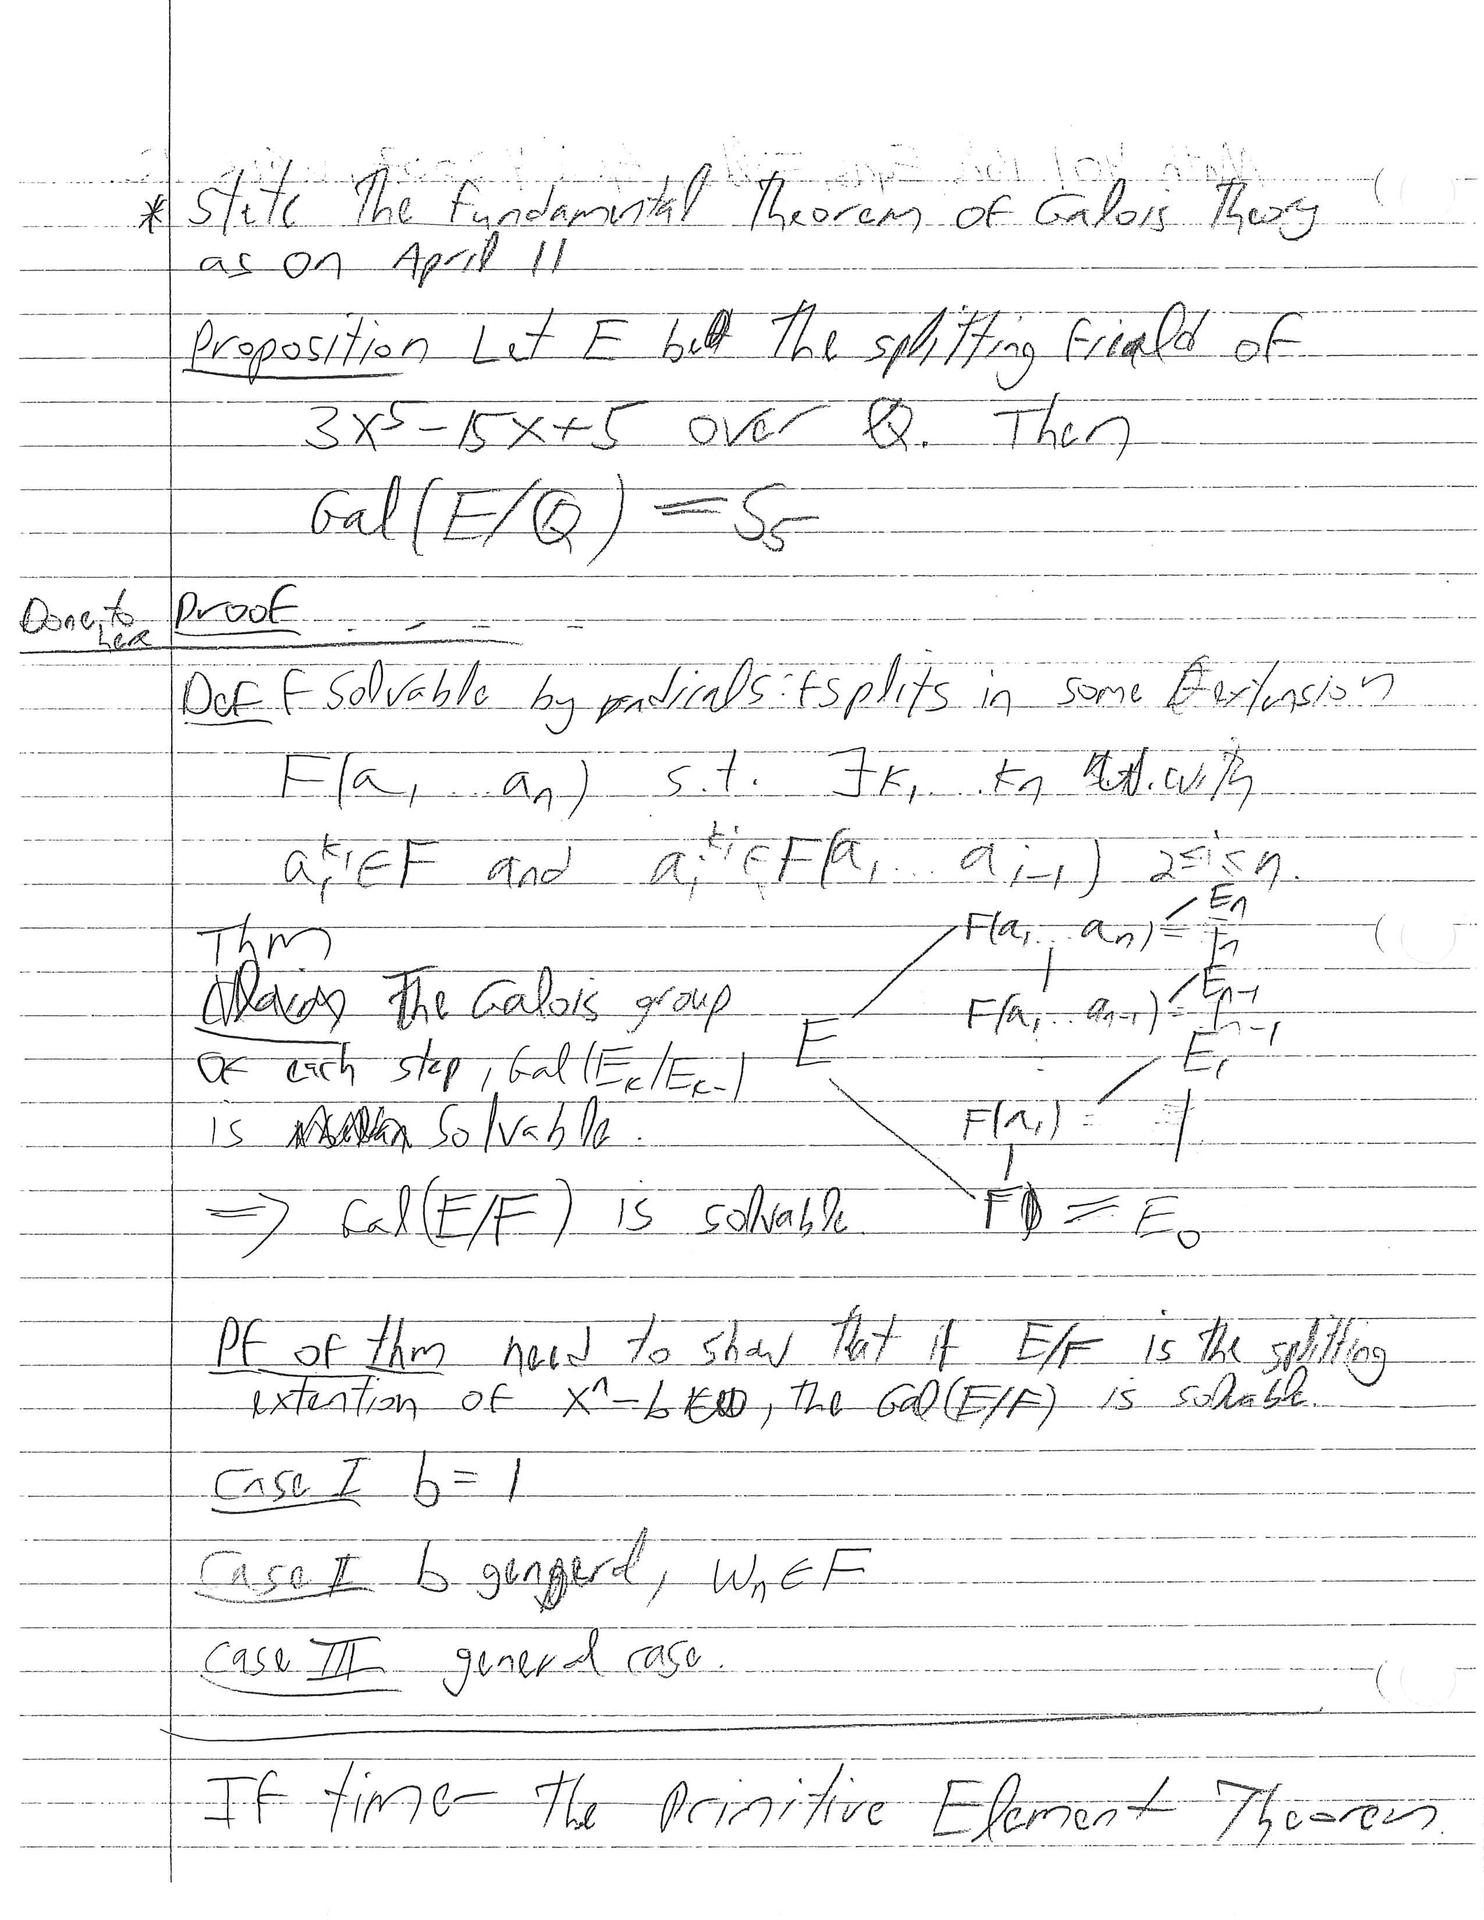 * State The Fundamental Theorem of Galois Theory
as on April 11
Proposition Let E be the splitting field of
3x⁵-15x+5 over Q. Then
Gal(E/Q) = S₅
Done to here
Proof
Def f solvable by radicals: f splits in some extension
F(a₁...aₙ) s.t. ∃k₁...kₙ with
a₁^k₁∈F and aᵢ^kᵢ∈F(a₁...aᵢ₋₁) 2≤i≤n.
Thm
The Galois group
of each step, Gal(E_k/E_k-1)
is solvable.
⇒ Gal(E/F) is solvable.
E
F(a₁...aₙ) = Eₙ
F(a₁...aₙ₋₁) = Eₙ₋₁
F(a₁) = E₁
F = E₀
PF of thm need to show that if E/F is the splitting
extention of xⁿ-b, the Gal(E/F) is solvable.
Case I b=1
Case II b general, Wₙ∈F
Case III general case.
If time - The Primitive Element Theorem.